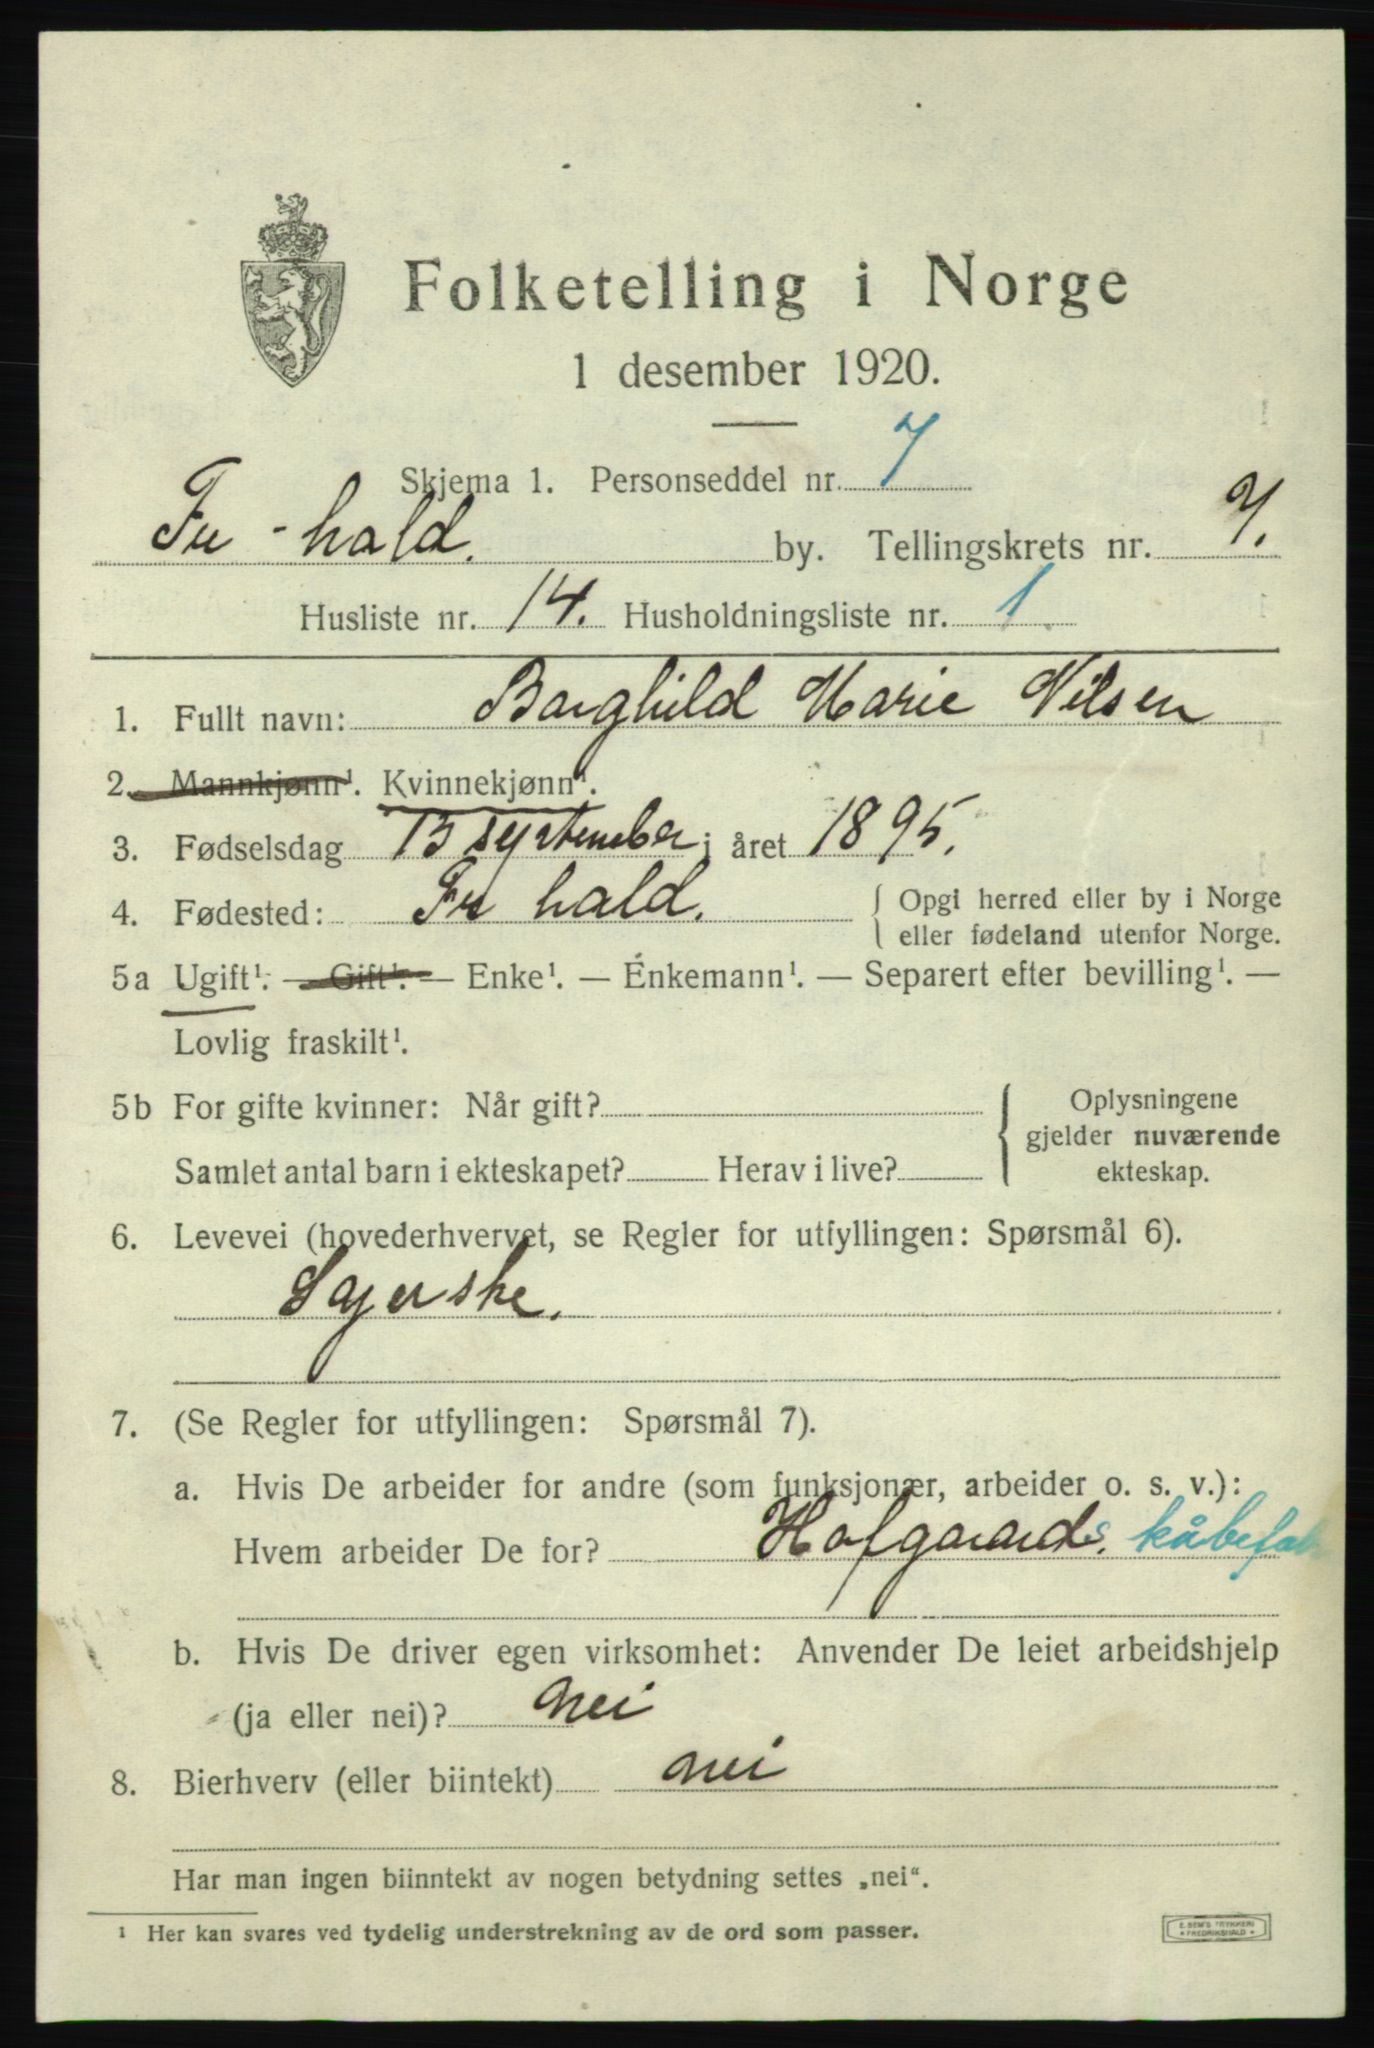 Folketelling i Norge
1 desember 1920.
Skjema 1. Personseddel nr. 7
Fr-hald. by. Tellingskrets nr. 7.
Husliste nr. 14. Husholdningsliste nr. 1.
1. Fullt navn: Borghild Marie Nilsen
2. Mannkjønn¹. Kvinnekjønn¹.
3. Fødselsdag 13 september i året 1895.
4. Fødested: Fr hald. { Opgi herred eller by i Norge
eller fødeland utenfor Norge.
5a Ugift¹. — Gift¹. — Enke¹. — Enkemann¹. — Separert efter bevilling¹. —
Lovlig fraskilt¹.
5b For gifte kvinner: Når gift? { Oplysningene
gjelder nuværende
Samlet antal barn i ekteskapet? Herav i live? ekteskap.
6. Levevei (hovederhvervet, se Regler for utfyllingen: Spørsmål 6).
Syerske.
7. (Se Regler for utfyllingen: Spørsmål 7).
a. Hvis De arbeider for andre (som funksjonær, arbeider o. s. v.):
Hvem arbeider De for? Hofgaards. kåbefab
b. Hvis De driver egen virksomhet: Anvender De leiet arbeidshjelp
(ja eller nei)? nei
8. Bierhverv (eller biintekt) nei
Har man ingen biinntekt av nogen betydning settes „nei“.
¹ Her kan svares ved tydelig understrekning av de ord som passer.
E. SEM'S TRYKKERI
FREDRIKSHALD